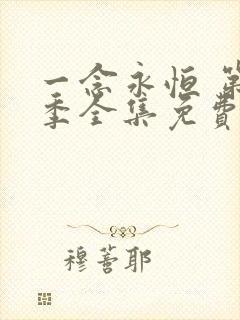 一念永恒 第
季全集免费
穆蒼耶